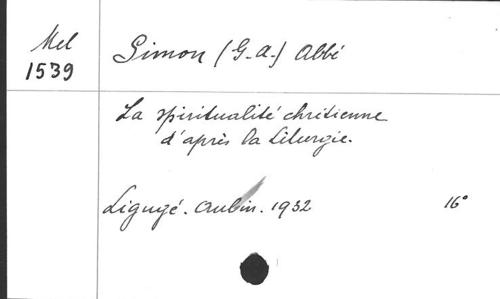 Mel
1539
Simon (G.-A.-) Abbé
La spiritualité chrétienne
d'après la Liturgie.
Ligugé. Aubin. 1932
16°